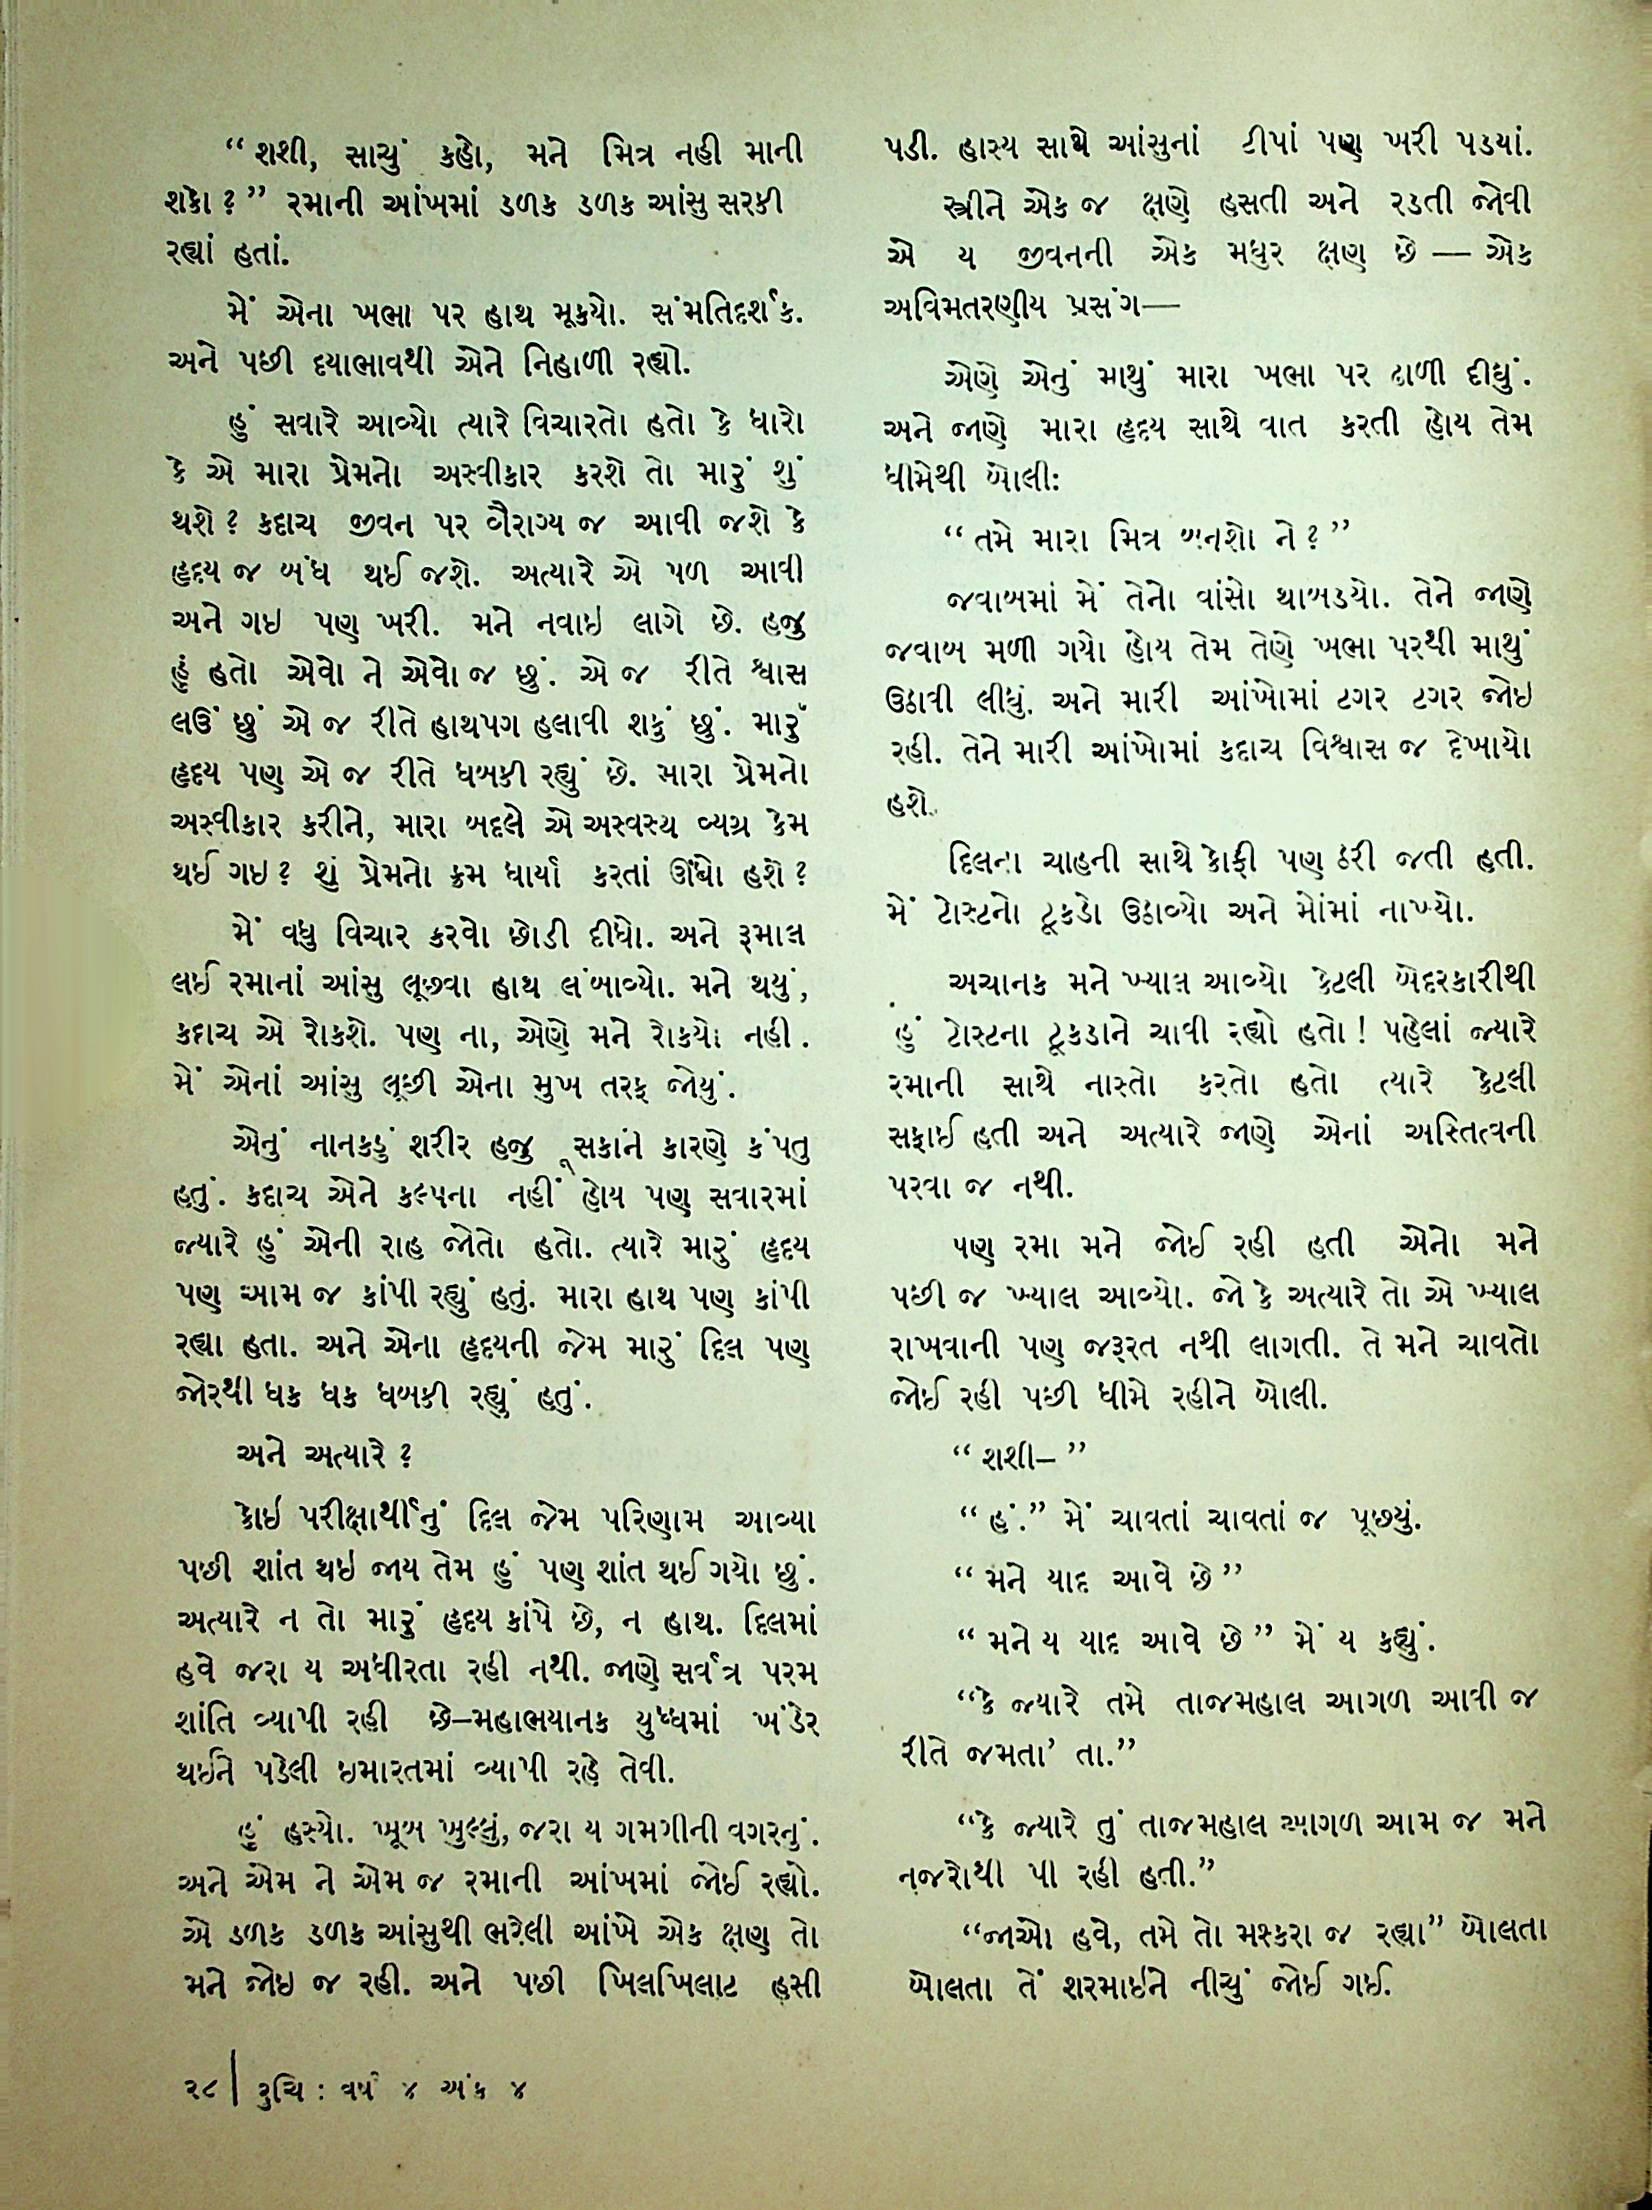 “શશી, સાચું કહો, મને મિત્ર નહી માની
શકો ?” રમાની આંખમાં ડળક ડળક આંસુ સરકી
રહ્યાં હતાં.
મેં એના ખભા પર હાથ મૂકયો. સંમતિદર્શક.
અને પછી દયાભાવથી એને નિહાળી રહ્યો.
હું સવારે આવ્યો ત્યારે વિચારતો હતો કે ધારો
કે એ મારા પ્રેમનો અસ્વીકાર કરશે તો મારું શું
થશે ? કદાચ જીવન પર વૈરાગ્ય જ આવી જશે કે
હૃદય જ બંધ થઈ જશે. અત્યારે એ પળ આવી
અને ગઇ પણ ખરી. મને નવાઇ લાગે છે. હજુ
હું હતો એવો ને એવો જ છું. એ જ રીતે શ્વાસ
લઉં છું એ જ રીતે હાથપગ હલાવી શકું છું. મારું
હૃદય પણ એ જ રીતે ધબકી રહ્યું છે. મારા પ્રેમનો
અસ્વીકાર કરીને, મારા બદલે એ અસ્વસ્ય વ્યગ્ર કેમ
થઈ ગઇ ? શું પ્રેમનો ક્રમ ધાર્યા કરતાં ઊંધો હશે ?
મેં વધુ વિચાર કરવો છોડી દીધો. અને રૂમાલ
લઈ રમાનાં આંસુ લૂછવા હાથ લંબાવ્યો. મને થયું,
કદાચ એ રોકશે. પણ ના, એણે મને રોકયો નહી.
મેં એનાં આંસુ લૂછી એના મુખ તરફ જોયું.
એનું નાનકડું શરીર હજુ સકાંને કારણે કંપતુ
હતું. કદાચ એને કલ્પના નહીં હોય પણ સવારમાં
જ્યારે હું એની રાહ જોતો હતો. ત્યારે મારું હૃદય
પણ આમ જ કાંપી રહ્યું હતું. મારા હાથ પણ કાંપી
રહ્યા હતા. અને એના હૃદયની જેમ મારું દિલ પણ
જોરથી ધક ધક ધબકી રહ્યું હતું.
અને અત્યારે ?
કોઇ પરીક્ષાર્થીનું દિલ જેમ પરિણામ આવ્યા
પછી શાંત થઇ જાય તેમ હું પણ શાંત થઈ ગયો છું.
અત્યારે ન તો મારું હૃદય કાંપે છે, ન હાથ. દિલમાં
હવે જરા ય અધીરતા રહી નથી. જાણે સર્વત્ર પરમ
શાંતિ વ્યાપી રહી છે–મહાભયાનક યુધ્ધમાં ખંડેર
થઈને પડેલી ઇમારતમાં વ્યાપી રહે તેવી.
હું હસ્યો. ખૂબ ખુલ્લું, જરા ય ગમગીની વગરનું.
અને એમ ને એમ જ રમાની આંખમાં જોઈ રહ્યો.
એ ડળક ડળક આંસુથી ભરેલી આંખે એક ક્ષણ તો
મને જોઇ જ રહી. અને પછી ખિલખિલાટ હસી
પડી. હાસ્ય સાથે આંસુનાં ટીપાં પણ ખરી પડયાં.
સ્ત્રીને એક જ ક્ષણે હસતી અને રડતી જોવી
એ ય જીવનની એક મધુર ક્ષણ છે — એક
અવિમતરણીય પ્રસંગ—
એણે એનું માથું મારા ખભા પર ઢાળી દીધું.
અને જાણે મારા હૃદય સાથે વાત કરતી હોય તેમ
ધીમેથી બોલી:
“તમે મારા મિત્ર બનશો ને ?”
જવાબમાં મેં તેનો વાંસો થાબડયો. તેને જાણે
જવાબ મળી ગયો હોય તેમ તેણે ખભા પરથી માથું
ઉઠાવી લીધું. અને મારી આંખોમાં ટગર ટગર જોઇ
રહી. તેને મારી આંખોમાં કદાચ વિશ્વાસ જ દેખાયો
હશે.
દિલના ચાહની સાથે કોફી પણ ઠરી જતી હતી.
મેં ટોસ્ટનો ટૂકડો ઉઠાવ્યો અને મોંમાં નાખ્યો.
અચાનક મને ખ્યાલ આવ્યો કેટલી બેદરકારીથી
હું ટોસ્ટના ટૂકડાને ચાવી રહ્યો હતો ! પહેલાં જ્યારે
રમાની સાથે નાસ્તો કરતો હતો ત્યારે કેટલી
સફાઈ હતી અને અત્યારે જાણે એનાં અસ્તિત્વની
પરવા જ નથી.
પણ રમા મને જોઈ રહી હતી એનો મને
પછી જ ખ્યાલ આવ્યો. જો કે અત્યારે તો એ ખ્યાલ
રાખવાની પણ જરૂરત નથી લાગતી. તે મને ચાવતો
જોઈ રહી પછી ધીમે રહીને બોલી.
“શશી–”
“હં.” મેં ચાવતાં ચાવતાં જ પૂછ્યું.
“મને યાદ આવે છે”
“મને ય યાદ આવે છે” મેં ય કહ્યું.
“કે જ્યારે તમે તાજમહાલ આગળ આવી જ
રીતે જમતા’ તા.”
“કે જ્યારે તું તાજમહાલ આગળ આમ જ મને
નજરોથી પી રહી હતી.”
“જાઓ હવે, તમે તો મશ્કરા જ રહ્યા” બોલતા
બોલતા તેં શરમાઇને નીચું જોઈ ગઈ.
૨૮ | રુચિ : વર્ષ ૪ અંક ૪